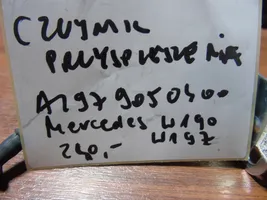 CZUJNIK
PRZYSPIESZENIA
A1979050400
Mercedes W190
W197
240,-